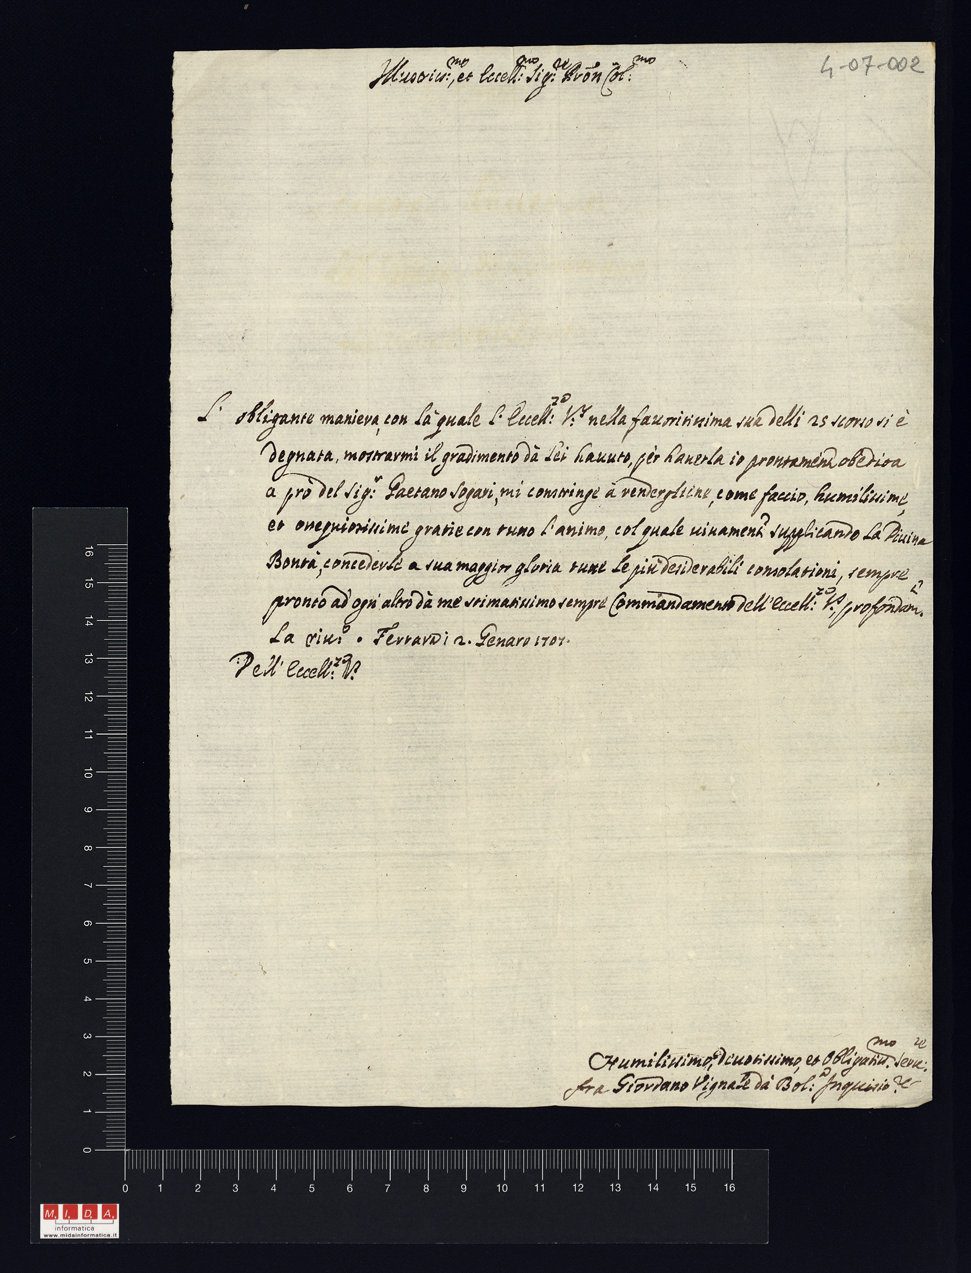 4-07-002
Illustris:mo, et Eccell:mo Sig:re Pròn Col:mo
L' obligante maniera, con la quale l' Eccell:za V:ra nella favoritissima sua delli 25 scorso si è
degnata, mostrarmi il gradimento dà Lei havuto, pèr haverla io prontamente obedita
a prò del Sig:r Gaetano Sogari, mi constringe à rendergliene, come faccio, humilissime,
et ossequiosissime gratie con tutto l' animo, col quale vivamente supplicando La Divina
Bontà, concederle a sua maggior gloria tutte le più desiderabili consolationi, sempre
pronto ad ogni altro dà me stimatissimo sempre Commandamento dell' Eccell:za V:a, profondam:te
La riv:o. Ferrara li 2. Genaro 1707.
Dell' Eccell:za V:a
Humilissimo, Devotissimo, et Obligatis:mo Serv:re
fra Giordano Vignale dà Bol:a Inquisito:re
0 1 2 3 4 5 6 7 8 9 10 11 12 13 14 15 16
0 1 2 3 4 5 6 7 8 9 10 11 12 13 14 15 16
M. I. D. A.
informatica
www.midainformatica.it